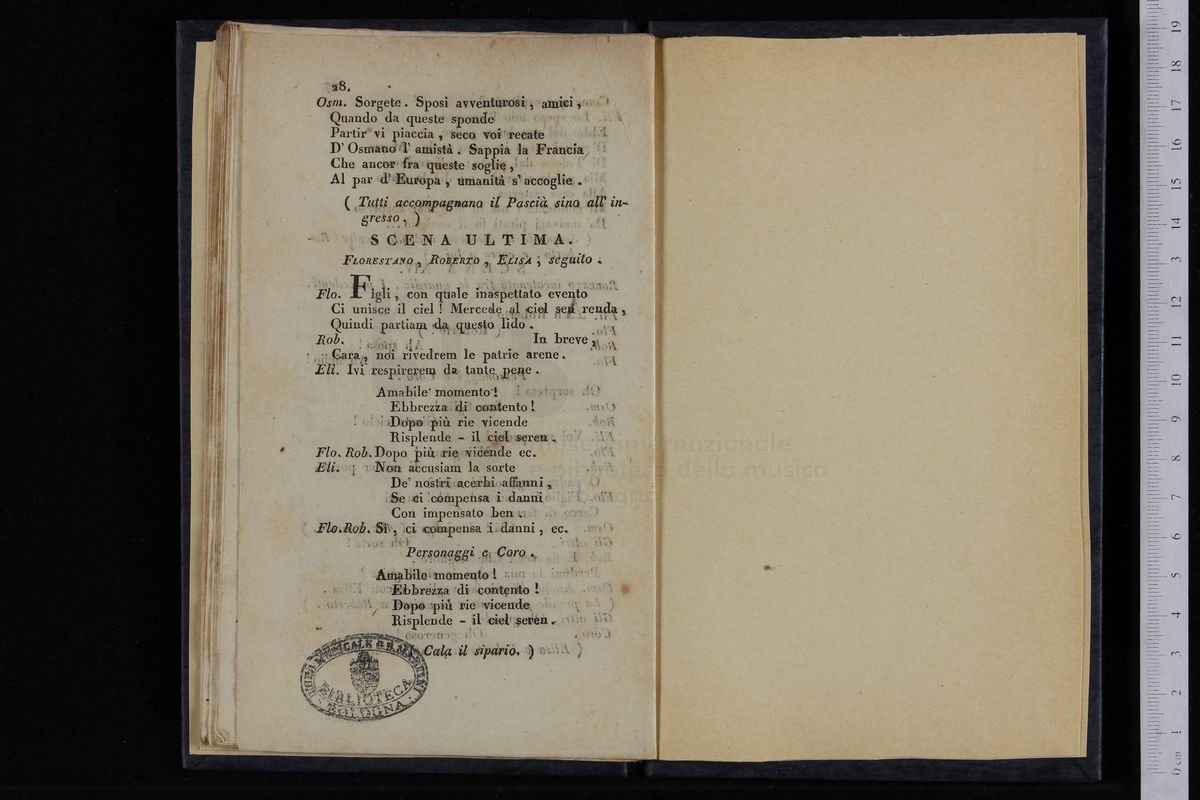 28.
Osm. Sorgete. Sposi avventurosi, amici,
Quando da queste sponde
Partir vi piaccia, seco voi recate
D' Osmano l' amistà. Sappia la Francia
Che ancor fra queste soglie,
Al par d' Europa, umanità s' accoglie.
( Tutti accompagnano il Pascià sino all' in-
gresso. )
SCENA ULTIMA.
Florestano, Roberto, Elisa, seguito.
Flo. Figli, con quale inaspettato evento
Ci unisce il ciel! Mercede al ciel sen renda,
Quindi partiam da questo lido.
Rob. In breve,
Cara, noi rivedrem le patrie arene.
Eli. Ivi respirerem da tante pene.
Amabile momento!
Ebbrezza di contento!
Dopo più rie vicende
Risplende - il ciel seren.
Flo. Rob. Dopo più rie vicende ec.
Eli. Non accusiam la sorte
De' nostri acerbi affanni,
Se ci compensa i danni
Con impensato ben.
Flo. Rob. Sì, ci compensa i danni, ec.
Personaggi e Coro.
Amabile momento!
Ebbrezza di contento!
Dopo più rie vicende
Risplende - il ciel seren.
Cala il sipario. )
BIBLIOTECA
BOLOGNA
museo internazionale
e biblioteca della musica
0 cm 1 2 3 4 5 6 7 8 9 10 11 12 13 14 15 16 17 18 19